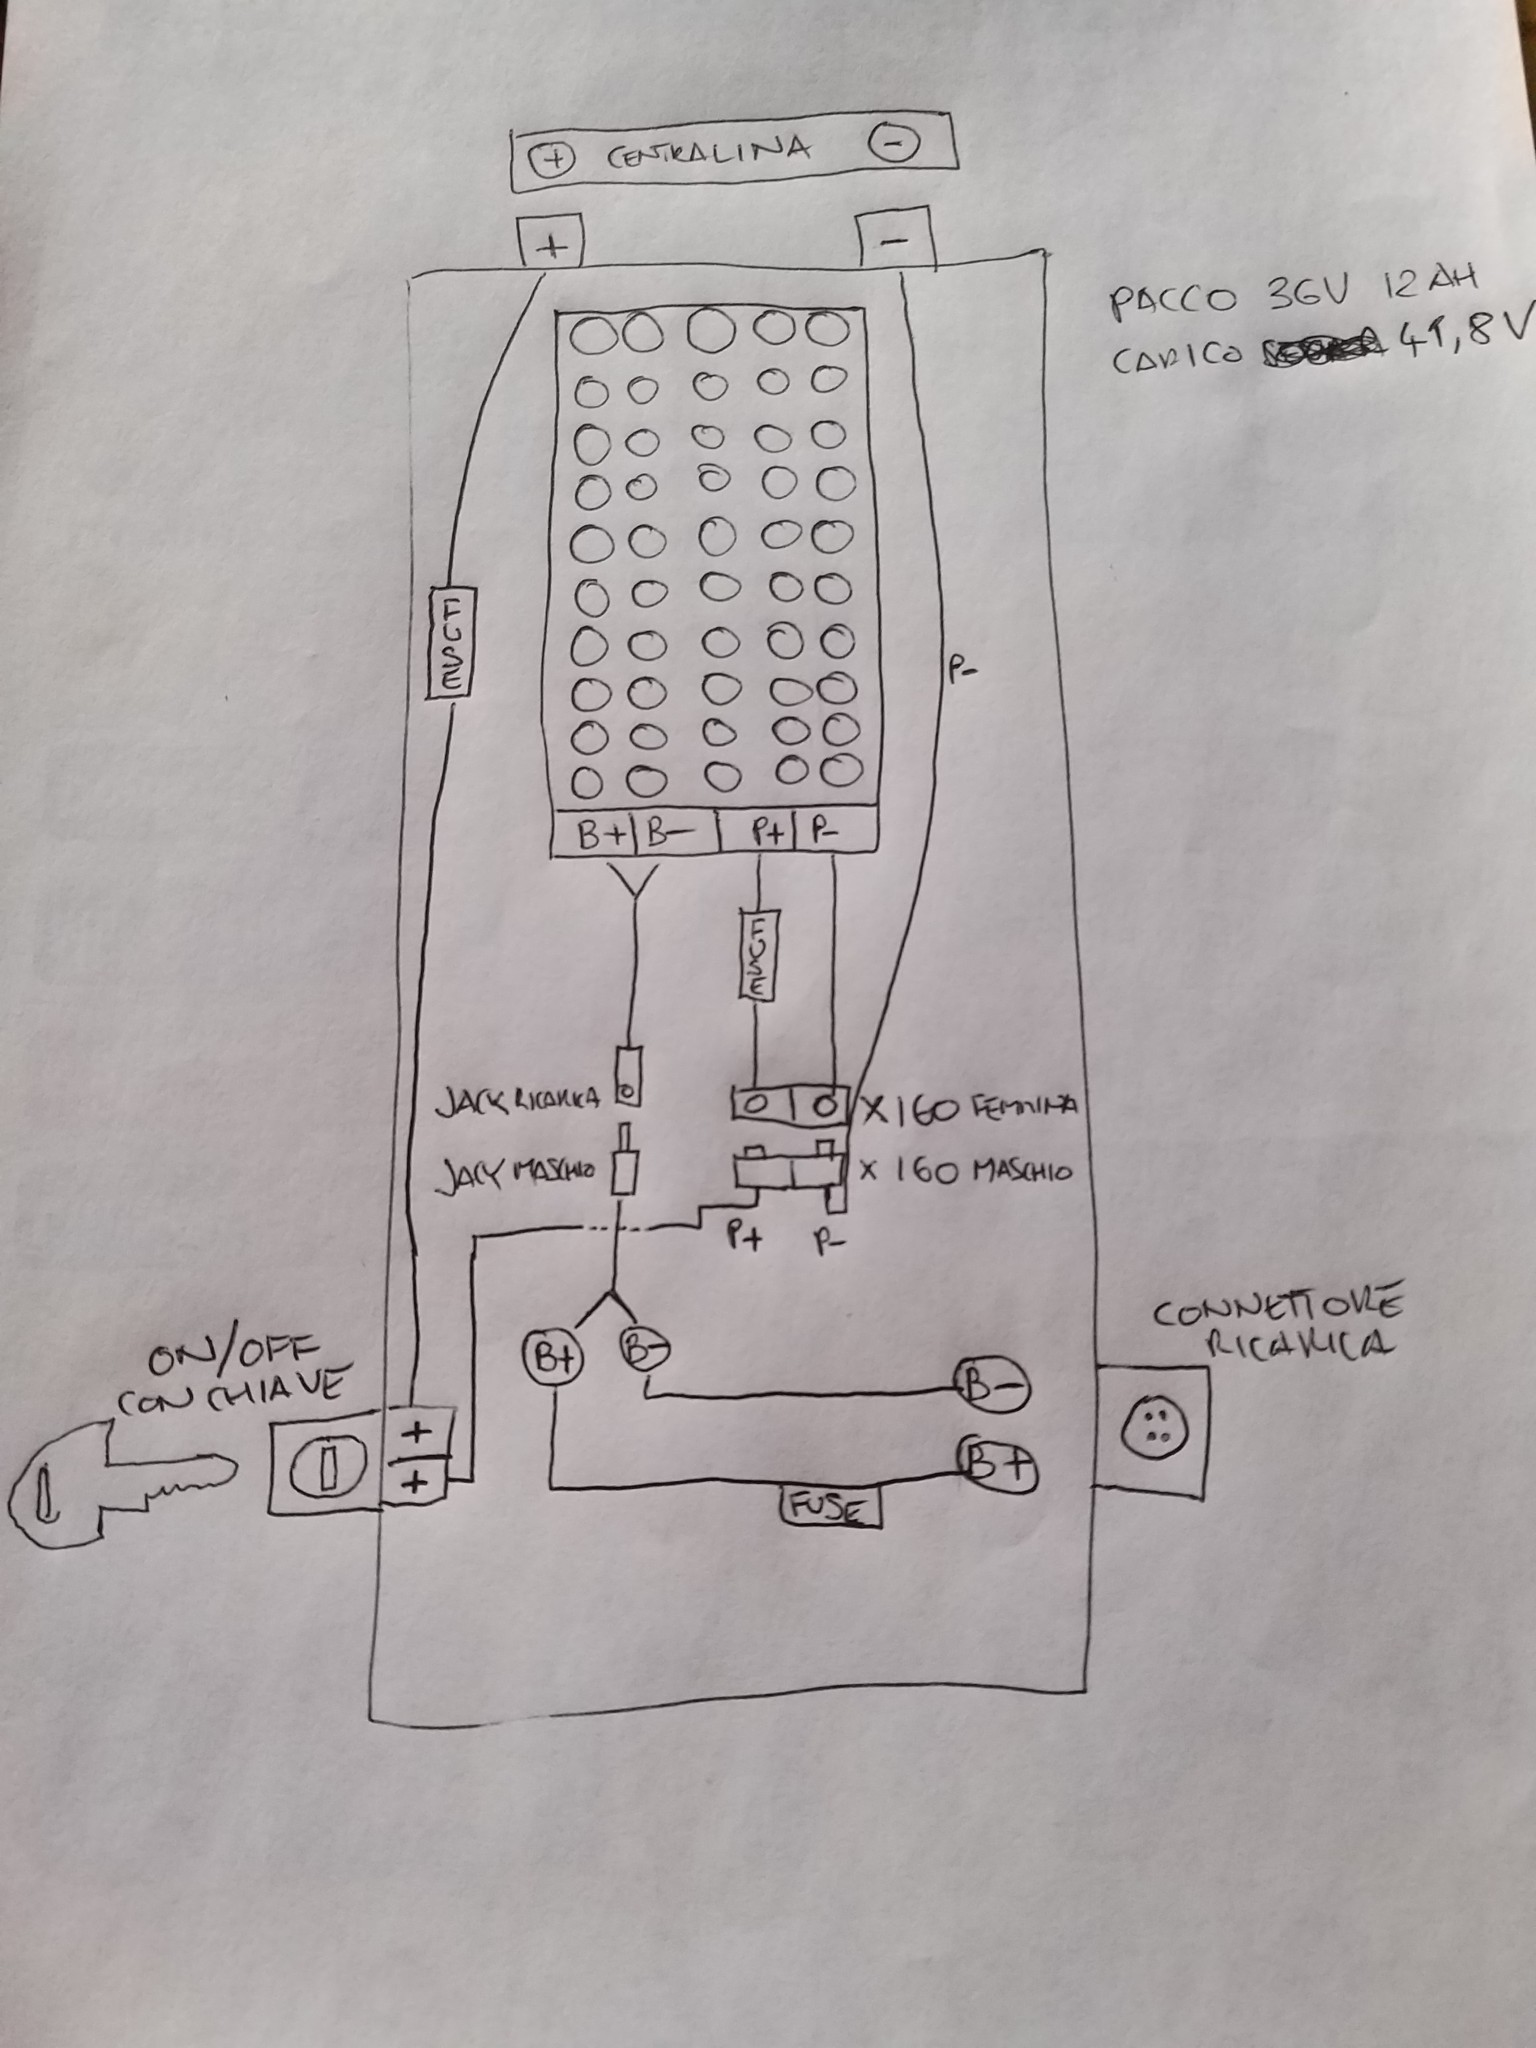 + CENTRALINA -
+ -
PACCO 36V 12AH
CARICO 41,8V
FUSE
P-
B+ B- P+ P-
FUSE
JACK RICARICA
X160 FEMMINA
JACK MASCHIO
X160 MASCHIO
P+ P-
CONNETTORE
RICARICA
ON/OFF
CON CHIAVE
B+ B-
B-
+
+
B+
FUSE